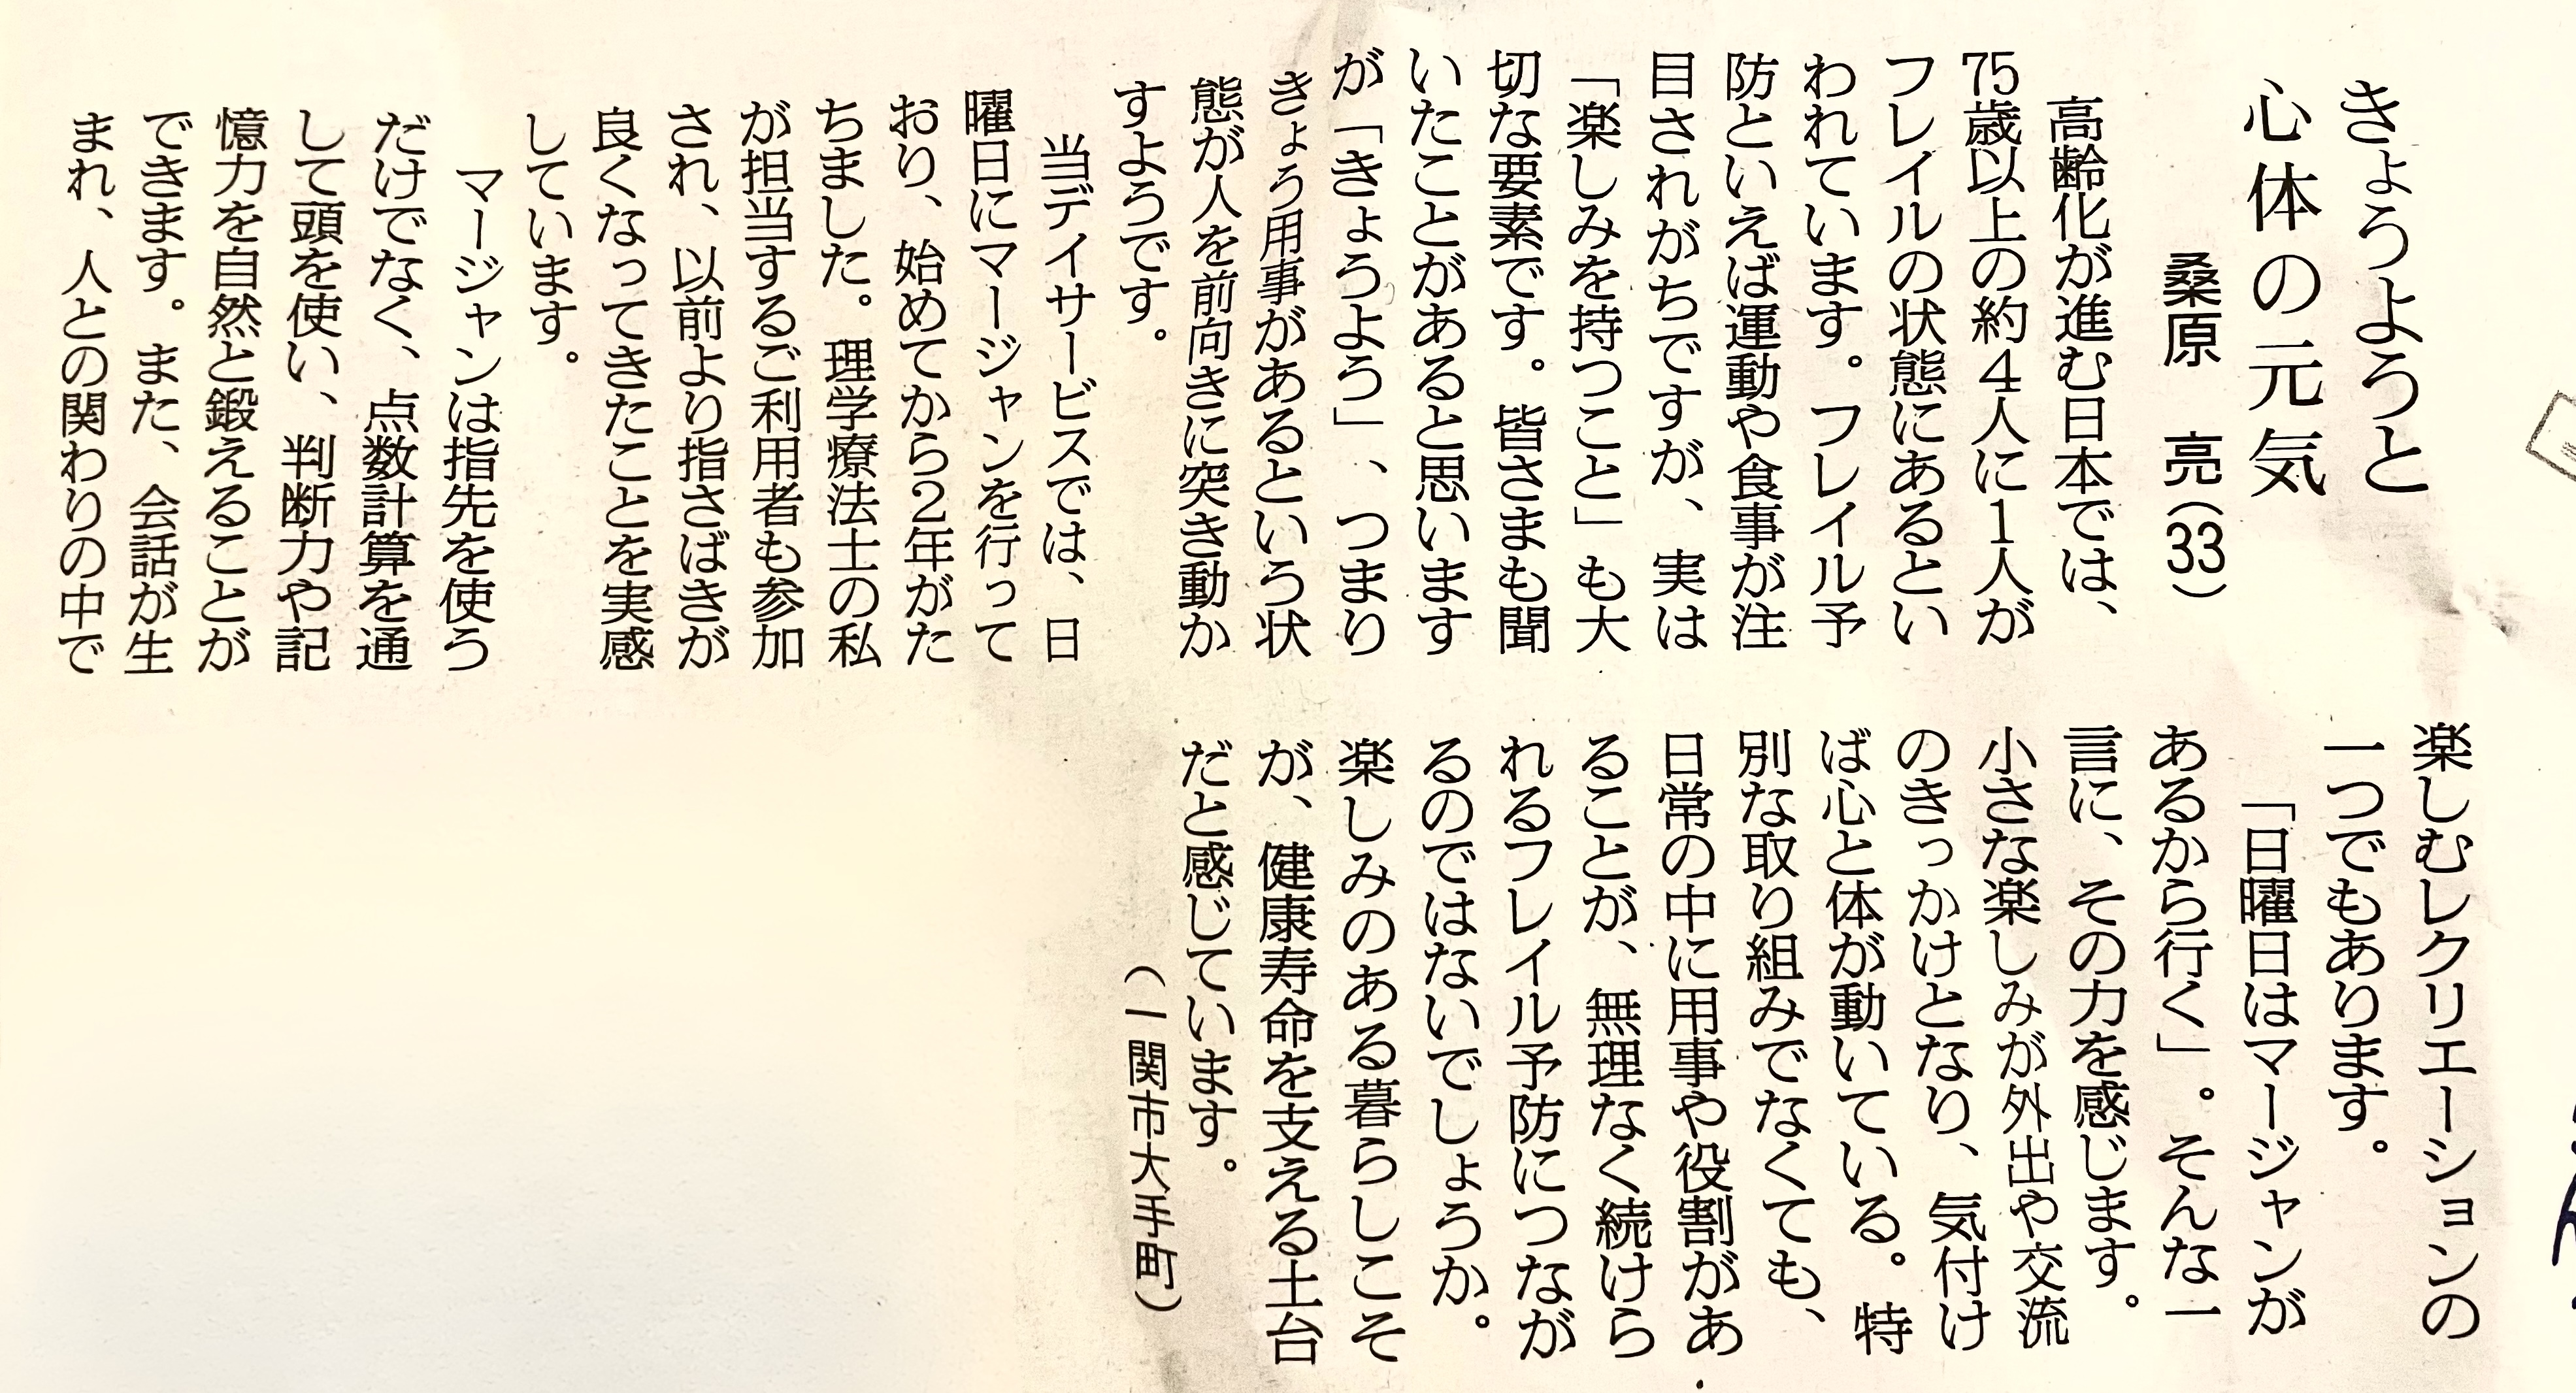 きょうようと
心体の元気
桑原　亮(33)
　高齢化が進む日本では、
75歳以上の約4人に1人が
フレイルの状態にあるとい
われています。フレイル予
防といえば運動や食事が注
目されがちですが、実は
「楽しみを持つこと」も大
切な要素です。皆さまも聞
いたことがあると思います
が「きょうよう」、つまり
きょう用事があるという状
態が人を前向きに突き動か
すようです。
　当デイサービスでは、日
曜日にマージャンを行って
おり、始めてから2年がた
ちました。理学療法士の私
が担当するご利用者も参加
され、以前より指さばきが
良くなってきたことを実感
しています。
　マージャンは指先を使う
だけでなく、点数計算を通
して頭を使い、判断力や記
憶力を自然と鍛えることが
できます。また、会話が生
まれ、人との関わりの中で
楽しむレクリエーションの
一つでもあります。
　「日曜日はマージャンが
あるから行く」。そんな一
言に、その力を感じます。
小さな楽しみが外出や交流
のきっかけとなり、気付け
ば心と体が動いている。特
別な取り組みでなくても、
日常の中に用事や役割があ
ることが、無理なく続けら
れるフレイル予防につなが
るのではないでしょうか。
楽しみのある暮らしこそ
が、健康寿命を支える土台
だと感じています。
（一関市大手町）